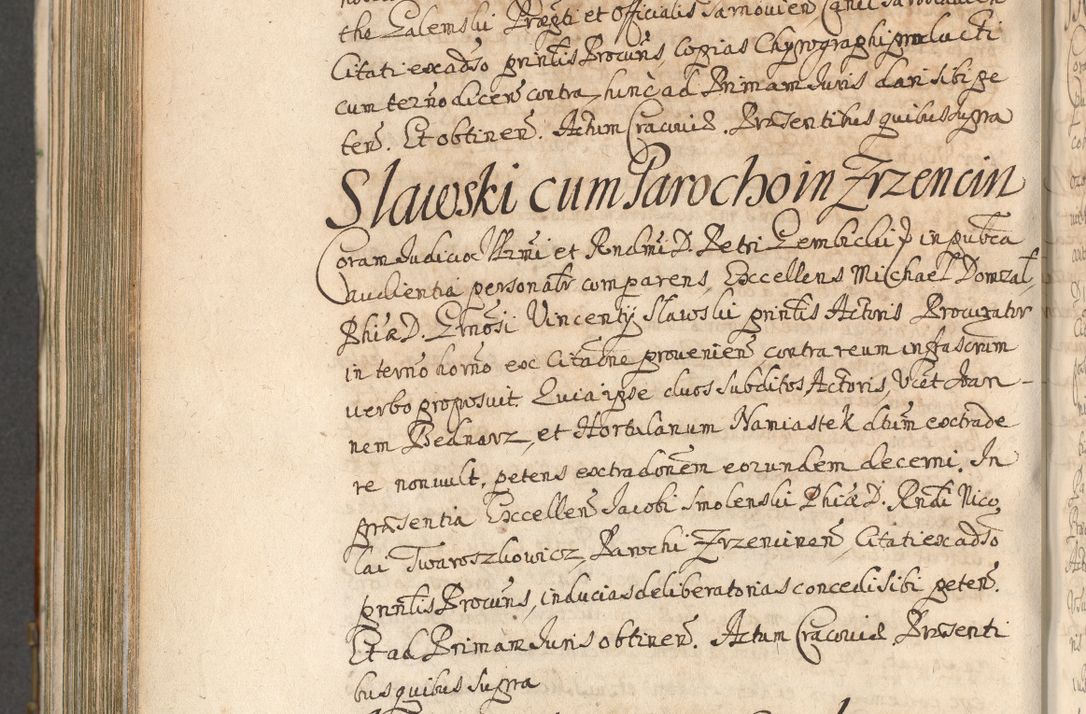 the Galemski Præpti et Officialis Tarnovien
Citati ex adso prñtis Procuris, Copias Chyrographi producti
cum terño dicere contra, hinc ad Primam Juris dari sibi pe
teñ. Et obtineñ. Actum Cracoviæ. Præsentibus quibus supra
Slawski cum Parocho in Zrzencin
Coram Judicio Illrmi et Rndmi D. Petri Gembicki in pubca
audientia personalr comparens, Excellens Michael Domzal,
Phiæ D. Grñosi Vincentij Slawski prñtis Actoris Procurator
in terño horño ex Citaoñe provenieñ contra reum infrascrum
verbo proposuit. Quia ipse duos subditos Actoris, Vcet Joan-
nem Bednarz, et Hortulanum Namiastek dtum extrade
re non vult, petens extradonem eorundem decerni. In
præsentia Excelleñ Jacobi Smolenski Phiæ D. Rndi Nico
lai Twaroszkowicz, Parochi Zrzencineñ, Citati ex adso
prñtis Procuris, inducias deliberatorias concedi sibi peteñ.
Et ad Primam Juris obtineñ. Actum Cracoviæ. Præsenti
bus quibus supra